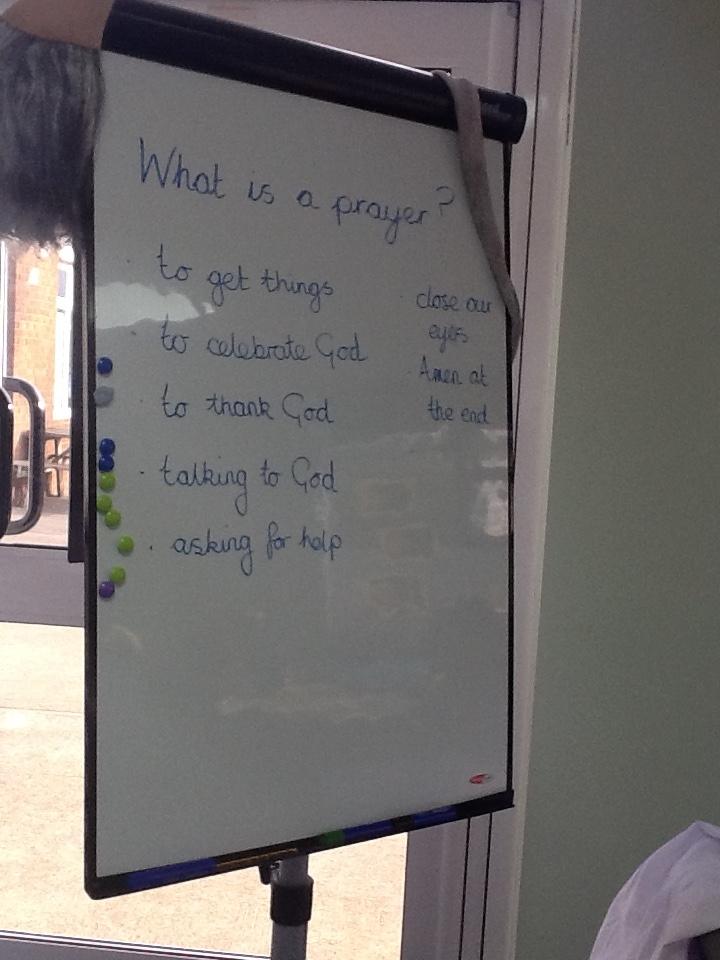 What is a prayer?
· to get things
· to celebrate God
· to thank God
· talking to God
· asking for help
· close our
eyes
· Amen at
the end